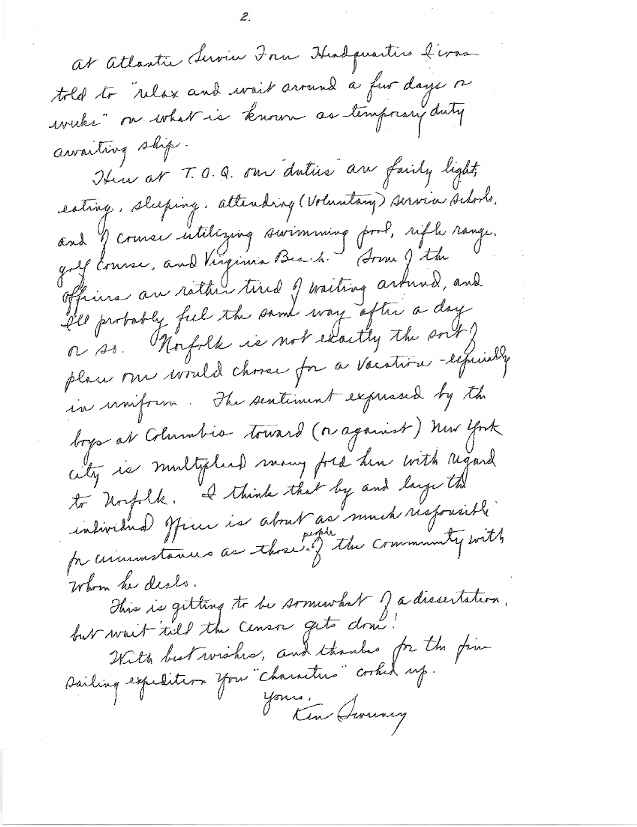 2.
At Atlantic Service Force Headquarters I was
told to "relax and wait around a few days or
weeks" on what is known as temporary duty
awaiting ship.
Here at T.O.Q. our "duties" are fairly light,
eating, sleeping, attending (Voluntary) service schools,
and of course utilizing swimming pool, rifle range,
golf course, and Virginia Beach. Some of the
officers are rather tired of waiting around, and
I'll probably feel the same way after a day
or so. Norfolk is not exactly the sort of
place one would choose for a vacation - especially
in uniform. The sentiment expressed by the
boys at Columbia toward (or against) New York
city is multiplied many fold here with regard
to Norfolk. I think that by and large the
individual officer is about as much responsible
for circumstances as those people of the community with
whom he deals.
This is getting to be somewhat of a dissertation,
but wait 'till the censor gets done!
With best wishes, and thanks for the fine
sailing expedition you "characters" cooked up.
Yours,
Ken Sweeney